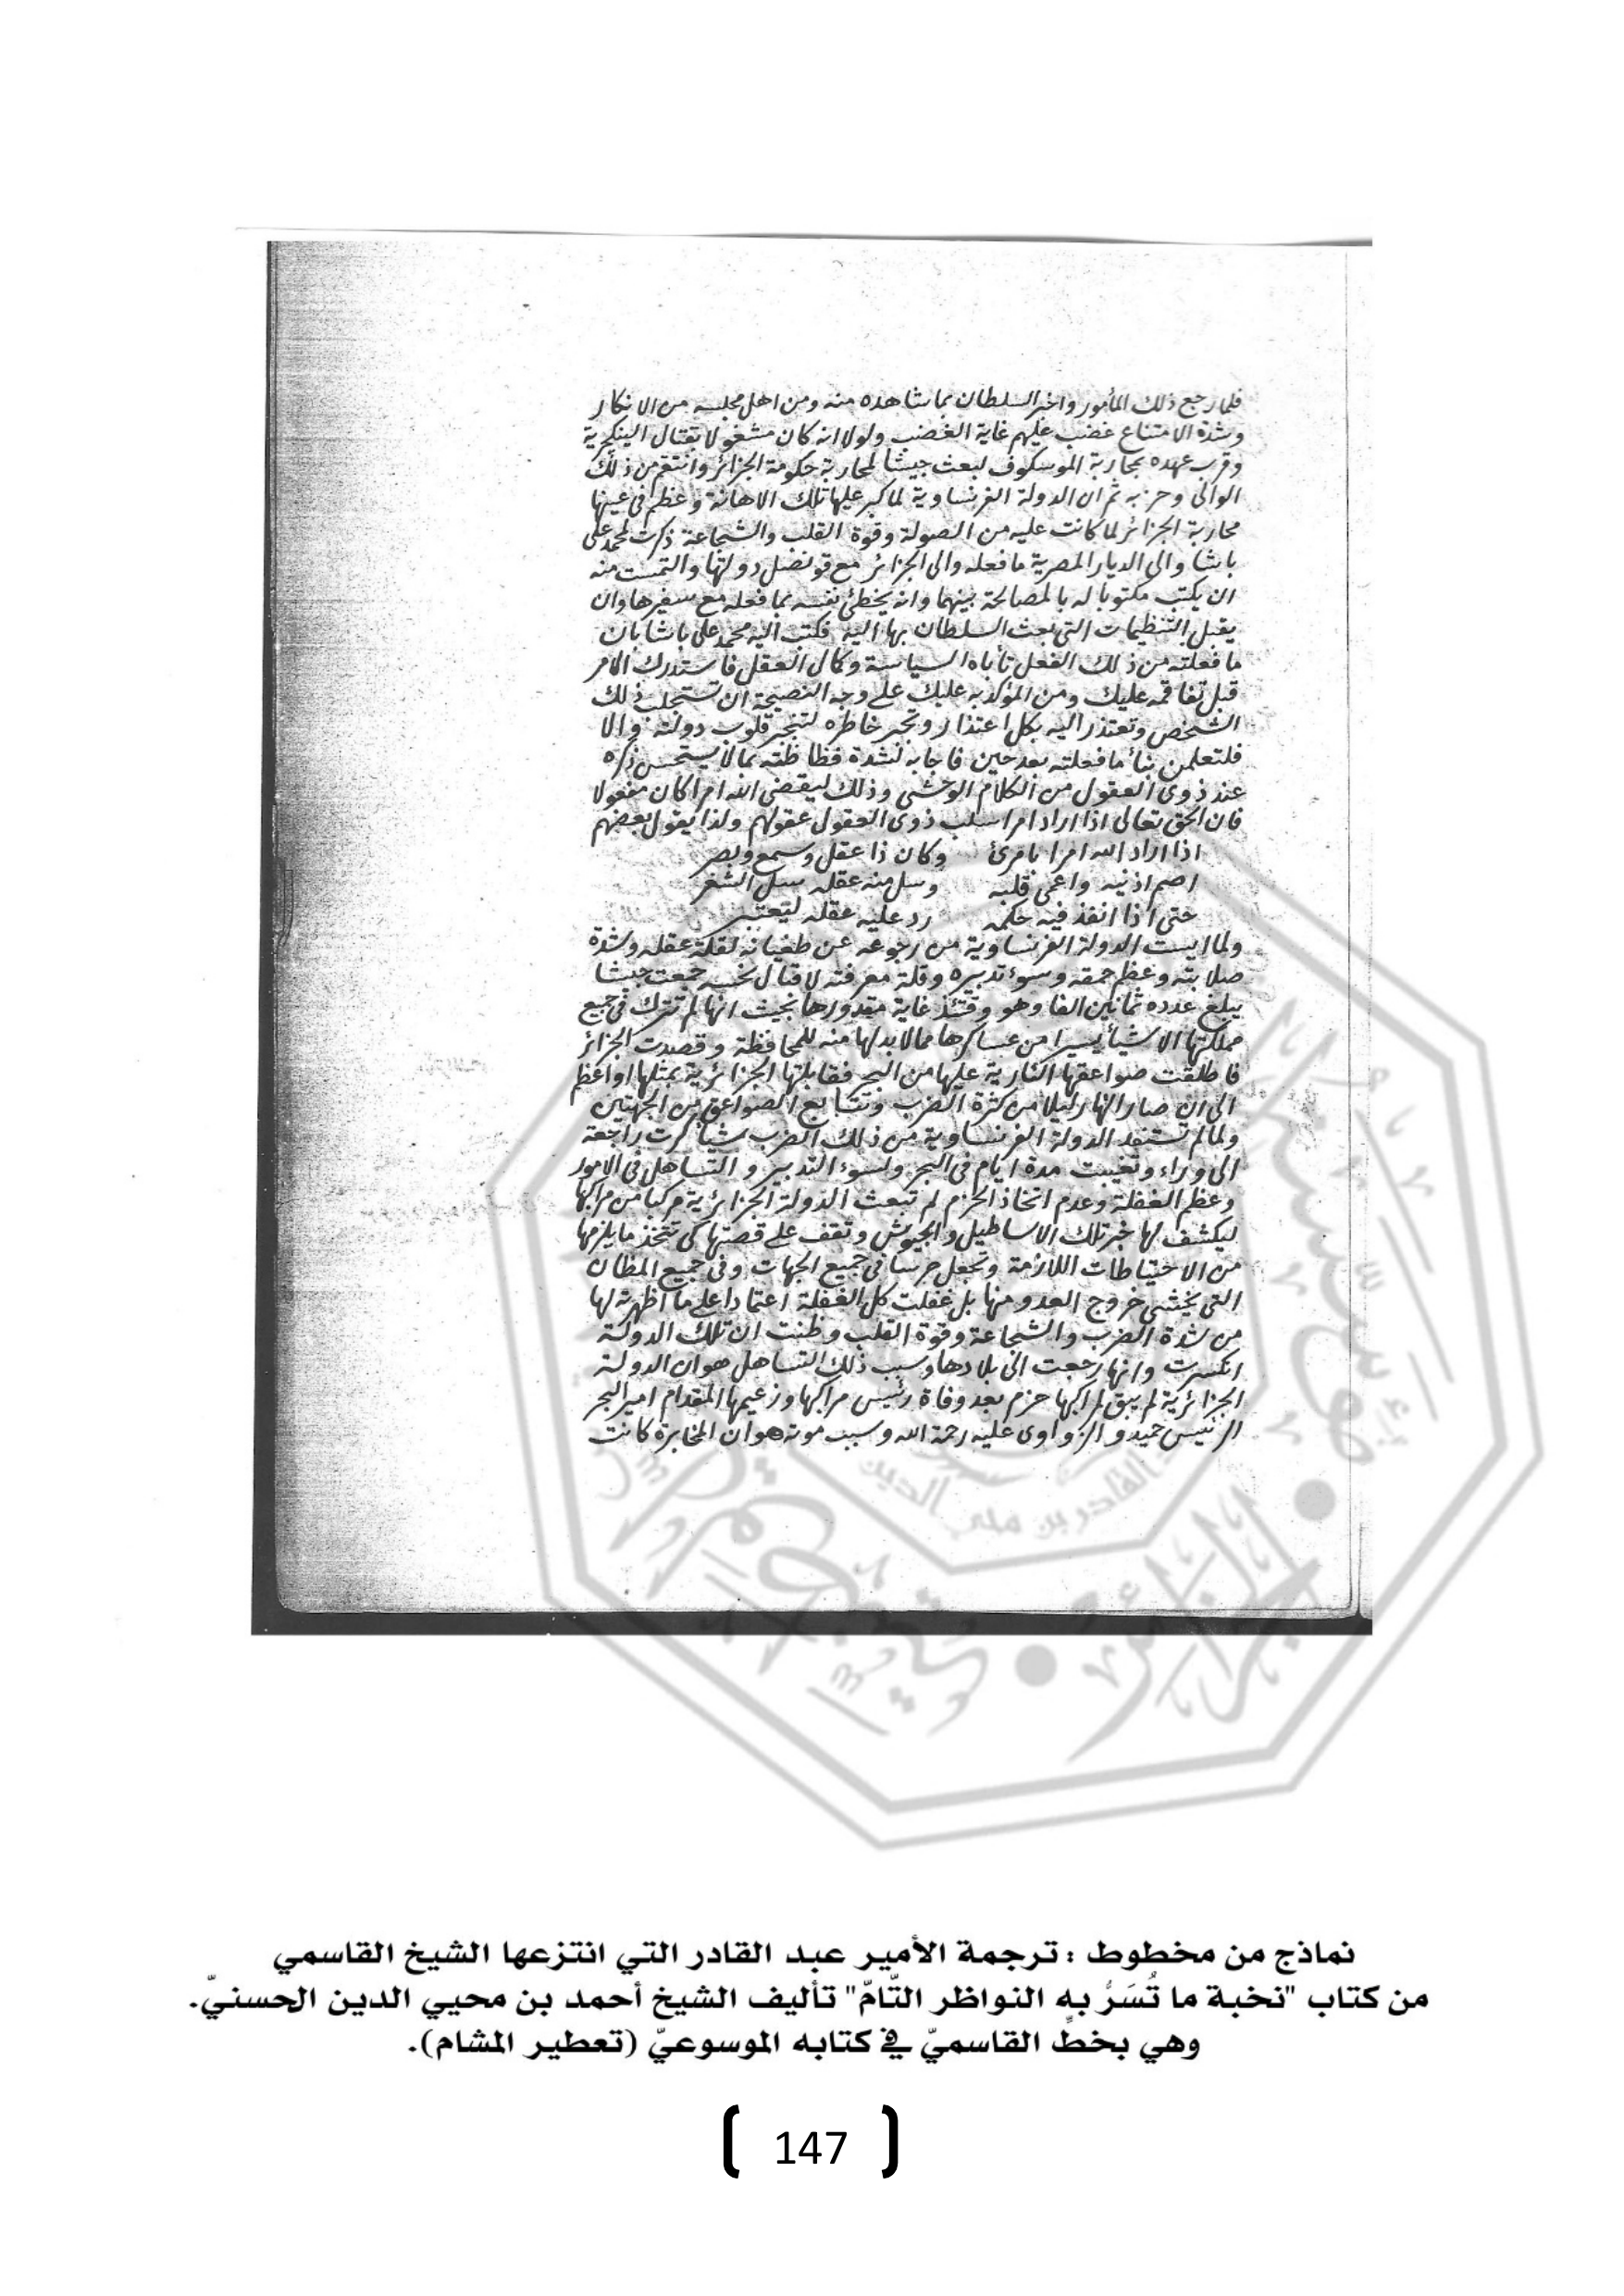 فلما رجع ذلك المأمور واخبر السلطان بما شاهده منه ومن اهل مجلسه من الانكار
وشدة الامتناع غضب عليهم غاية الغضب ولولا انه كان مشغولا بقتال الينكجرية
وقرب عهده بمحاربة الموسكوف لبعث جيشا لمحاربة حكومة الجزائر وانتقم من ذلك
الوالى وحزبه ثم ان الدولة الفرنساوية لما كبر عليها تلك الاهانة وعظم فى عينها
محاربة الجزائر لما كانت عليه من الصولة وقوة القلب والشجاعة ذكرت لمحمد على
باشا والى الديار المصرية ما فعله والى الجزائر مع قونضل دولتها والتمست منه
ان يكتب مكتوبا له بالمصالحة بينهما وانه يخطئ نفسه بما فعله مع سفيرها وان
يقبل التنظيمات التى بعث السلطان بها اليه فكتب اليه محمد على باشا بان
ما فعلته من ذلك الفعل تأباه السياسة وكمال العقل فاستدرك الامر
قبل تفاقمه عليك ومن المؤكد به عليك على وجه النصيحة ان تستجلب ذلك
الشخص وتعتذر اليه بكل اعتذار وتجبر خاطره لتنجبر قلوب دولته والا
فلتعلمن نبأ ما فعلته بعد حين فاجابه بشدة فظاظته بما لا يستحسن ذكره
عند ذوى العقول من الكلام الوحشى وذلك ليقضى الله امرا كان مفعولا
فان الحق تعالى اذا اراد امرا سلب ذوى العقول عقولهم ولذا يقول بعضهم
اذا اراد الله امرا بامرئ وكان ذا عقل وسمع وبصر
اصم اذنيه واعمى قلبه وسل منه عقله سل الشعر
حتى اذا انفذ فيه حكمه رد عليه عقله ليعتبر
ولما ايست الدولة الفرنساوية من رجوعه عن طغيانه لقلة عقله وشدة
صلابته وعظم حمقه وسوء تدبيره وقلة معرفته لا قتال نحسه جمعت جيشا
يبلغ عدده ثمانين الفا وهو وقتئذ غاية مقدورها بحيث انها لم تترك فى جميع
مملكتها الا شيأ يسيرا من عساكرها مما لا بد لها منه للمحافظة وقصدت الجزائر
فاطلقت صواعقها النارية عليها من البحر فقابلتها الجزائرية بمثلها او اعظم
الى ان صار النهار ليلا من كثرة الضرب وتتابع الصواعق من الجهتين
ولما لم تستفد الدولة الفرنساوية من ذلك الضرب شيأ كرت راجعة
الى وراء وتغيبت مدة ايام فى البحر ولسوء التدبير والتساهل فى الامور
وعظم الغفلة وعدم اتخاذ الحزم لم تبعث الدولة الجزائرية مركبا من مراكبها
ليكشف لها خبر تلك الاساطيل والجيوش وتقف على قصتها كى تتخذ ما يلزمها
من الاحتياطات اللازمة وتجعل حرسا فى جميع الجهات وفى جميع المظان
التى يخشى خروج العدو منها بل غفلت كل الغفلة اعتمادا على ما اظهرته لها
من شدة الضرب والشجاعة وقوة القلب وظنت ان تلك الدولة
انكسرت وانها رجعت الى بلادها وسبب ذلك التساهل هو ان الدولة
الجزائرية لم يبق لمراكبها حزم بعد وفاة رئيس مراكبها وزعيمها المقدام امير البحر
الرئيس حميدو الزواوى عليه رحمة الله وسبب موته هو ان المخابرة كانت
نماذج من مخطوط : ترجمة الأمير عبد القادر التي انتزعها الشيخ القاسمي
من كتاب "نخبة ما تُسَرُّ به النواظر التّامّ" تأليف الشيخ أحمد بن محيي الدين الحسنيّ.
وهي بخطّ القاسميّ في كتابه الموسوعيّ (تعطير المشام).
147